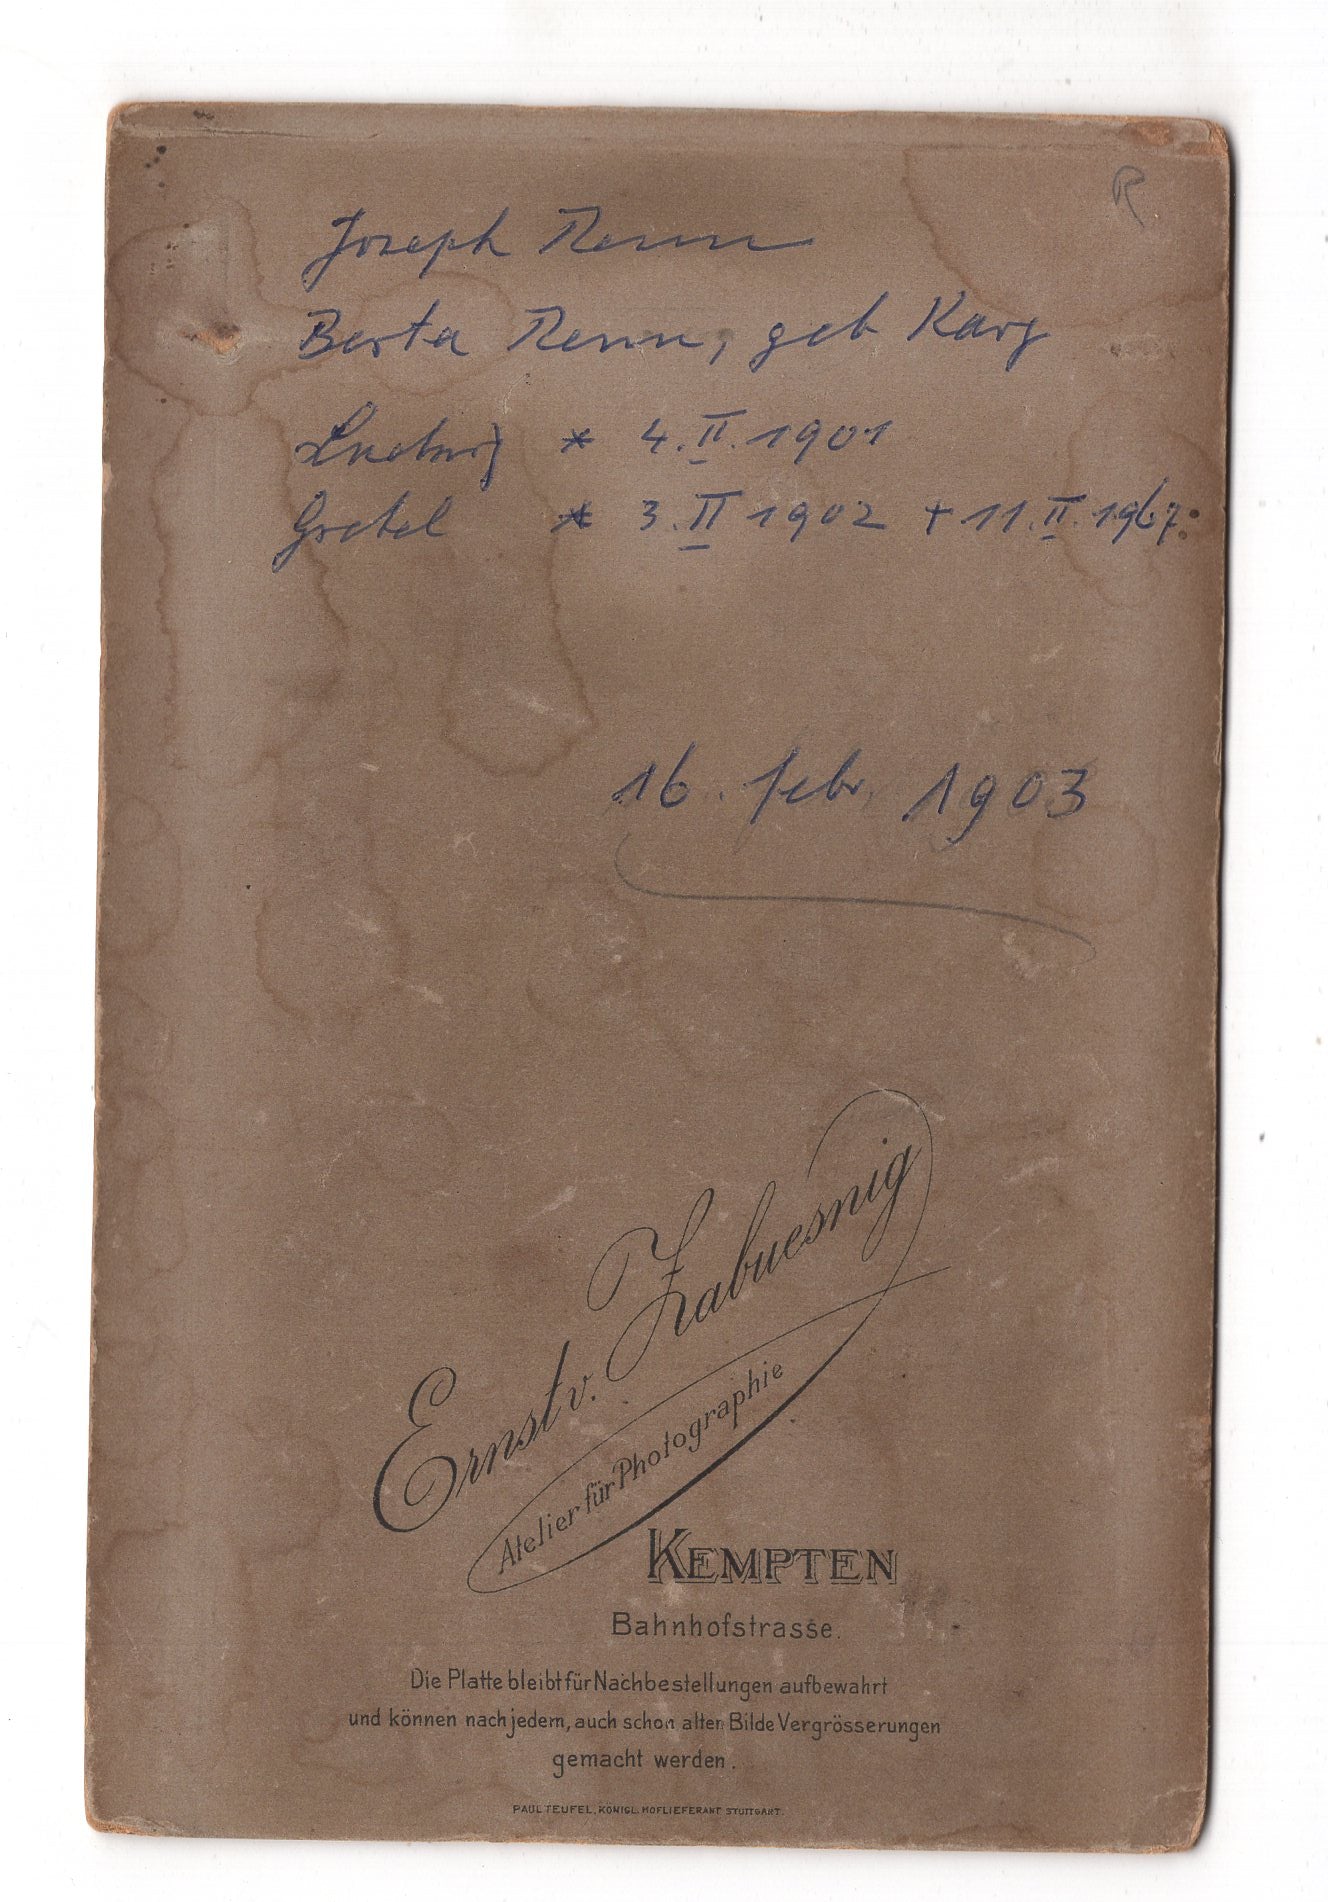 R
Joseph Renn
Berta Renn, geb Karg
Ludwig * 4.II.1901
Gretel * 3.II 1902 + 11.II.1967.
16. febr. 1903
Ernst v. Zabuesnig
Atelier für Photographie
KEMPTEN
Bahnhofstrasse.
Die Platte bleibt für Nachbestellungen aufbewahrt
und können nach jedem, auch schon alten Bilde Vergrösserungen
gemacht werden.
PAUL TEUFEL, KÖNIGL. HOFLIEFERANT STUTTGART.